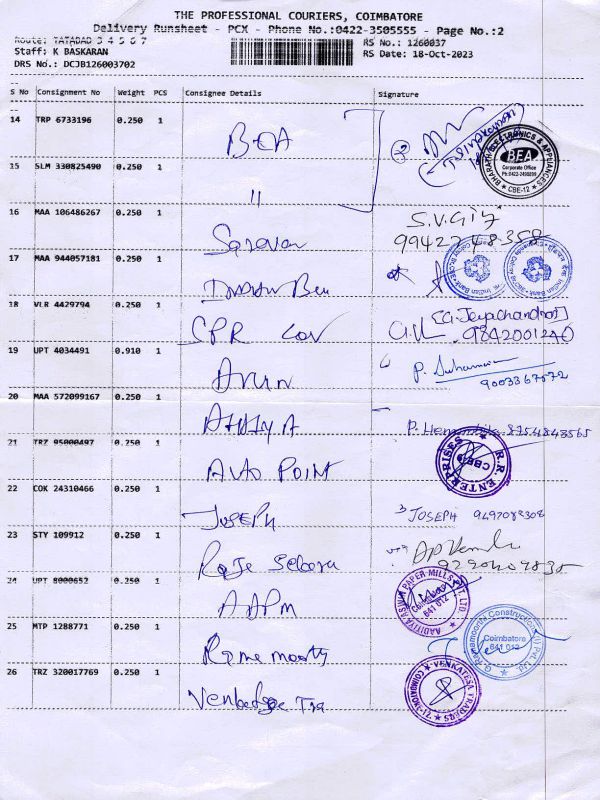 THE PROFESSIONAL COURIERS, COIMBATORE
Delivery Runsheet - PCX - Phone No.:0422-3505555 - Page No.:2
Route: TATABAD 3 4 5 6 7
Staff: K BASKARAN
RS No.: 1260037
DRS No.: DCJB126003702
RS Date: 18-Oct-2023
S No Consignment No Weight PCS Consignee Details Signature
14 TRP 6733196 0.250 1 BEA
BHARATH ELECTRONICS & APPLIANCES BEA Corporate Office Ph:0422-2499899 CBE-12
15 SLM 330825490 0.250 1 "
16 MAA 106486267 0.250 1 Saravan S.V.Gij
9942248358
17 MAA 944057181 0.250 1 Indian Bank
18 VLR 4429794 0.250 1 SPR Cov [G. Jeyachandran]
9842001240
19 UPT 4034491 0.910 1 Arun P. Suhamani
9003367672
20 MAA 572099167 0.250 1 P. Hemanhita 8754843565
21 TRZ 95000497 0.250 1 AUTO POINT
R.R. ENTERPRISES CBE-12
22 COK 24310466 0.250 1 JOSEPH JOSEPH 9497082302
23 STY 109912 0.250 1 Raje Sekara
24 UPT 8000652 0.250 1 AAPM
AADITYA ASWIN PAPER MILLS PVT. LTD. Coimbatore 641 012
25 MTP 1288771 0.250 1 Rame moorty
G. Ramamoorthi Constructions (I) Pvt. Ltd. Coimbatore 641 012
26 TRZ 320017769 0.250 1 Venkatge Tra
VENKATESA TRADERS COIMBATORE-12